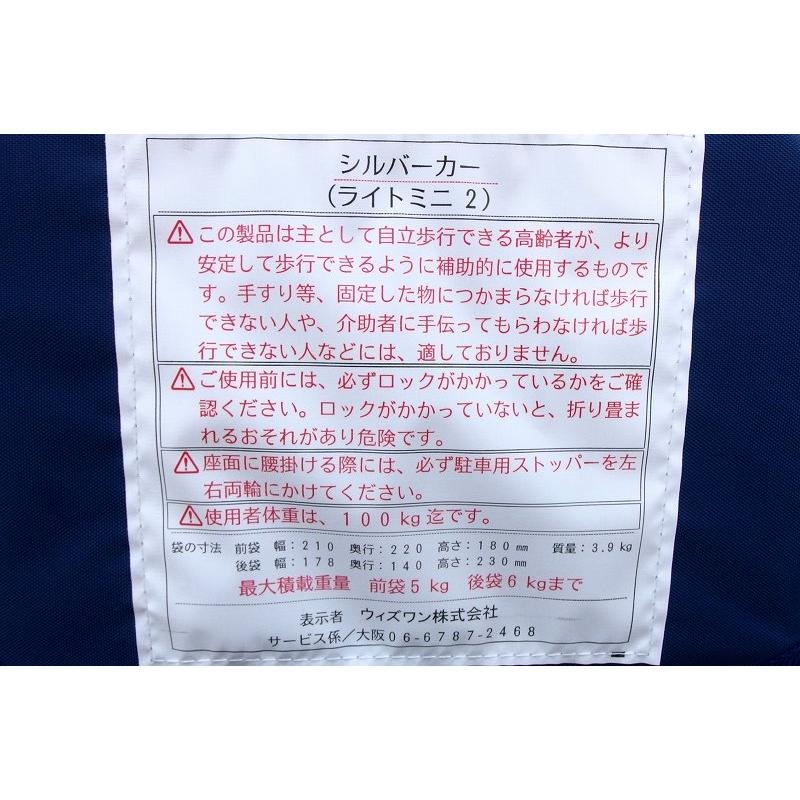 シルバーカー
(ライトミニ 2)
⚠この製品は主として自立歩行できる高齢者が、より
安定して歩行できるように補助的に使用するもので
す。手すり等、固定した物につかまらなければ歩行
できない人や、介助者に手伝ってもらわなければ歩
行できない人などには、適しておりません。
⚠ご使用前には、必ずロックがかかっているかをご確
認ください。ロックがかかっていないと、折り畳ま
れるおそれがあり危険です。
⚠座面に腰掛ける際には、必ず駐車用ストッパーを左
右両輪にかけてください。
⚠使用者体重は、100kg迄です。
袋の寸法 前袋 幅:210 奥行:220 高さ:180mm 質量:3.9kg
後袋 幅:178 奥行:140 高さ:230mm
最大積載重量 前袋5kg 後袋6kgまで
表示者 ウィズワン株式会社
サービス係/大阪06-6787-2468